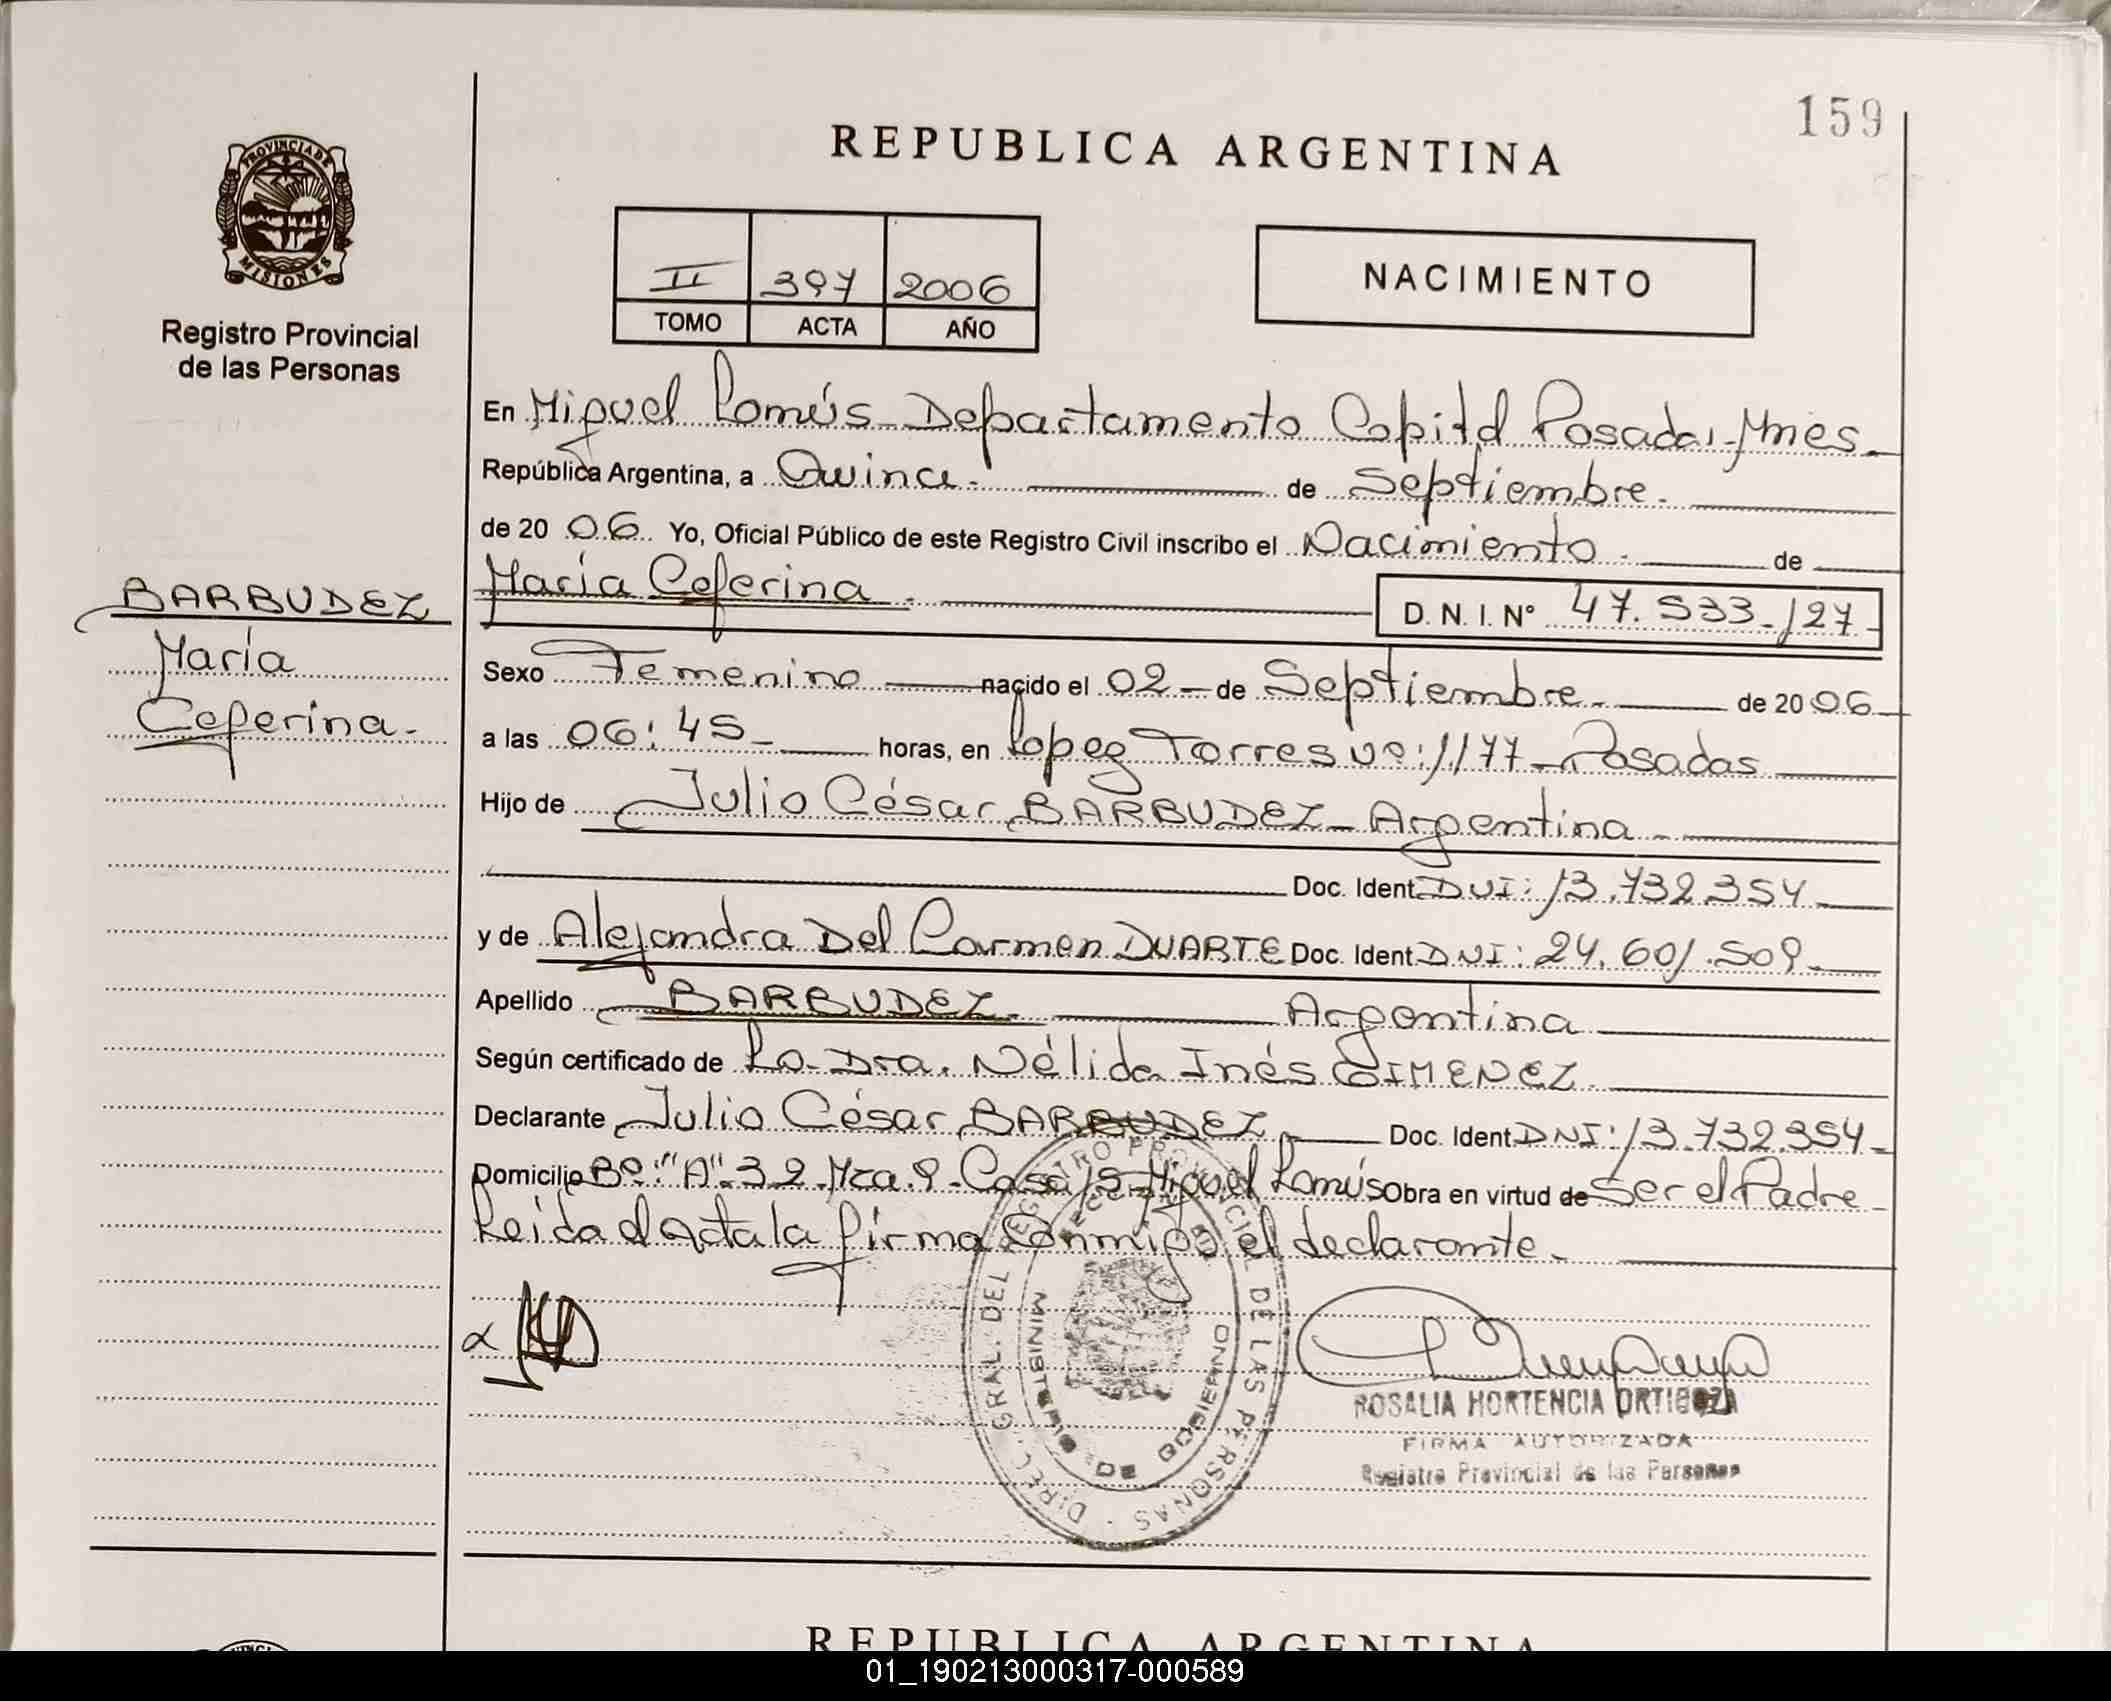 159
REPUBLICA ARGENTINA
PROVINCIA DE
MISIONES
Registro Provincial
de las Personas
II 397 2006
TOMO ACTA AÑO
NACIMIENTO
En Miguel Lanús Departamento Capital Posadas-Mnes-
República Argentina, a Quince. de Septiembre.
de 20 06. Yo, Oficial Público de este Registro Civil inscribo el Nacimiento. de
María Ceferina. D. N. I. Nº 47.533.127-
BARBUDEZ
María
Ceferina.
Sexo Femenino nacido el 02 - de Septiembre. de 20 06
a las 06:45 horas, en Lopez Torres Nº: 1177 - Posadas
Hijo de Julio César BARBUDEZ - Argentina
Doc. Ident. DNI: 13.732.354
y de Alejandra Del Carmen DUARTE Doc. Ident. DNI: 24.601.509.
Apellido BARBUDEZ. Argentina
Según certificado de La Dra. Nélida Inés GIMENEZ.
Declarante Julio César BARBUDEZ Doc. Ident. DNI: 13.732.354-
Domicilio Bº: "A" 3 2 Mza. 9 - Casa 15 - Miguel Lanús Obra en virtud de Ser el Padre
Leida el Acta la firma conmigo el declarante.
DIREC. GRAL. DEL REGISTRO PROVINCIAL DE LAS PERSONAS
MINISTERIO DE GOBIERNO
ROSALIA HORTENCIA ORTIGOZA
FIRMA AUTORIZADA
Registro Provincial de las Personas
REPUBLICA ARGENTINA
01_190213000317-000589